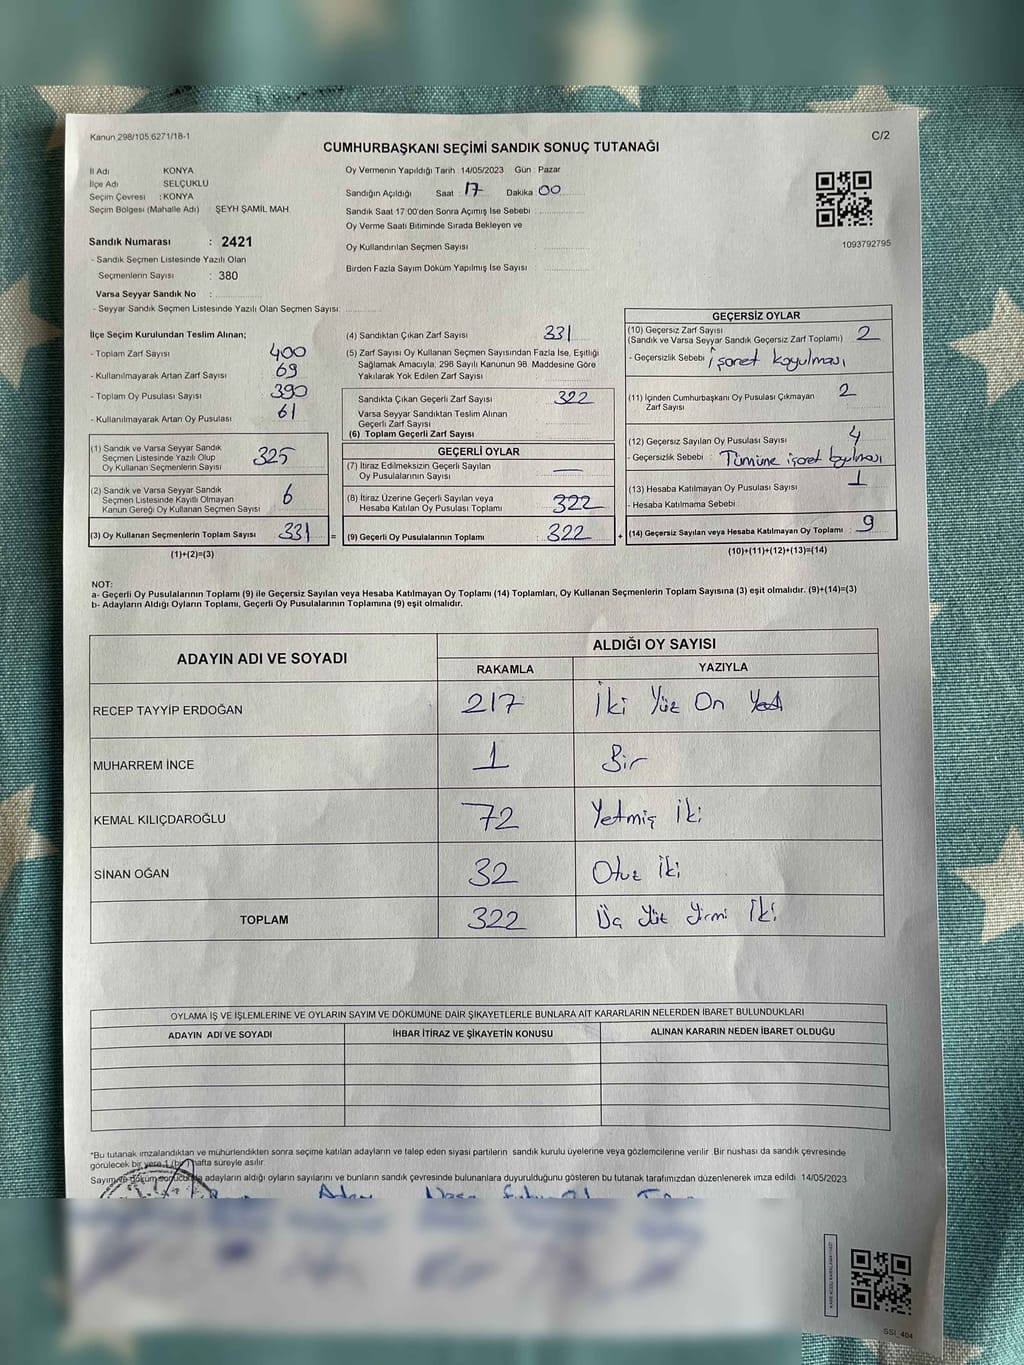 Kanun 298/105.6271/18-1
C/2
CUMHURBAŞKANI SEÇİMİ SANDIK SONUÇ TUTANAĞI
İl Adı KONYA
İlçe Adı SELÇUKLU
Seçim Çevresi : KONYA
Seçim Bölgesi (Mahalle Adı) ŞEYH ŞAMİL MAH.
Sandık Numarası : 2421
- Sandık Seçmen Listesinde Yazılı Olan
Seçmenlerin Sayısı : 380
Varsa Seyyar Sandık No :
- Seyyar Sandık Seçmen Listesinde Yazılı Olan Seçmen Sayısı:
Oy Vermenin Yapıldığı Tarih : 14/05/2023 Gün : Pazar
Sandığın Açıldığı Saat : 17 Dakika : 00
Sandık Saat 17:00'den Sonra Açımış İse Sebebi :
Oy Verme Saati Bitiminde Sırada Bekleyen ve
Oy Kullandırılan Seçmen Sayısı :
Birden Fazla Sayım Döküm Yapılmış İse Sayısı :
1093792795
İlçe Seçim Kurulundan Teslim Alınan;
- Toplam Zarf Sayısı 400
- Kullanılmayarak Artan Zarf Sayısı 69
- Toplam Oy Pusulası Sayısı 390
- Kullanılmayarak Artan Oy Pusulası 61
(1) Sandık ve Varsa Seyyar Sandık
Seçmen Listesinde Yazılı Olup
Oy Kullanan Seçmenlerin Sayısı 325
(2) Sandık ve Varsa Seyyar Sandık
Seçmen Listesinde Kayıtlı Olmayan
Kanun Gereği Oy Kullanan Seçmen Sayısı 6
(3) Oy Kullanan Seçmenlerin Toplam Sayısı 331 =
(1)+(2)=(3)
(4) Sandıktan Çıkan Zarf Sayısı 331
(5) Zarf Sayısı Oy Kullanan Seçmen Sayısından Fazla İse, Eşitliği
Sağlamak Amacıyla, 298 Sayılı Kanunun 98. Maddesine Göre
Yakılarak Yok Edilen Zarf Sayısı
Sandıkta Çıkan Geçerli Zarf Sayısı 322
Varsa Seyyar Sandıktan Teslim Alınan
Geçerli Zarf Sayısı
(6) Toplam Geçerli Zarf Sayısı
GEÇERLİ OYLAR
(7) İtiraz Edilmeksizin Geçerli Sayılan
Oy Pusulalarının Sayısı —
(8) İtiraz Üzerine Geçerli Sayılan veya
Hesaba Katılan Oy Pusulası Toplamı 322
(9) Geçerli Oy Pusulalarının Toplamı : 322 +
GEÇERSİZ OYLAR
(10) Geçersiz Zarf Sayısı
(Sandık ve Varsa Seyyar Sandık Geçersiz Zarf Toplamı) 2
- Geçersizlik Sebebi işaret koyulması
(11) İçinden Cumhurbaşkanı Oy Pusulası Çıkmayan
Zarf Sayısı 2
(12) Geçersiz Sayılan Oy Pusulası Sayısı 4
- Geçersizlik Sebebi : Tümüne işaret koyulması
(13) Hesaba Katılmayan Oy Pusulası Sayısı 1
- Hesaba Katılmama Sebebi
(14) Geçersiz Sayılan veya Hesaba Katılmayan Oy Toplamı : 9
(10)+(11)+(12)+(13)=(14)
NOT:
a- Geçerli Oy Pusulalarının Toplamı (9) ile Geçersiz Sayılan veya Hesaba Katılmayan Oy Toplamı (14) Toplamları, Oy Kullanan Seçmenlerin Toplam Sayısına (3) eşit olmalıdır. (9)+(14)=(3)
b- Adayların Aldığı Oyların Toplamı, Geçerli Oy Pusulalarının Toplamına (9) eşit olmalıdır.
ADAYIN ADI VE SOYADI
ALDIĞI OY SAYISI
RAKAMLA YAZIYLA
RECEP TAYYİP ERDOĞAN 217 İki Yüz On Yedi
MUHARREM İNCE 1 Bir
KEMAL KILIÇDAROĞLU 72 Yetmiş İki
SİNAN OĞAN 32 Otuz İki
TOPLAM 322 Üç Yüz Yirmi İki
OYLAMA İŞ VE İŞLEMLERİNE VE OYLARIN SAYIM VE DÖKÜMÜNE DAİR ŞİKAYETLERLE BUNLARA AİT KARARLARIN NELERDEN İBARET BULUNDUKLARI
ADAYIN ADI VE SOYADI İHBAR İTİRAZ VE ŞİKAYETİN KONUSU ALINAN KARARIN NEDEN İBARET OLDUĞU
*Bu tutanak imzalandıktan ve mühürlendikten sonra seçime katılan adayların ve talep eden siyasi partilerin sandık kurulu üyelerine veya gözlemcilerine verilir. Bir nüshası da sandık çevresinde
görülecek bir yere hafta süreyle asılır.
Sayım ve döküm adayların aldığı oyların sayılarını ve bunların sandık çevresinde bulunanlara duyurulduğunu gösteren bu tutanak tarafımızdan düzenlenerek imza edildi. 14/05/2023
SSI_404